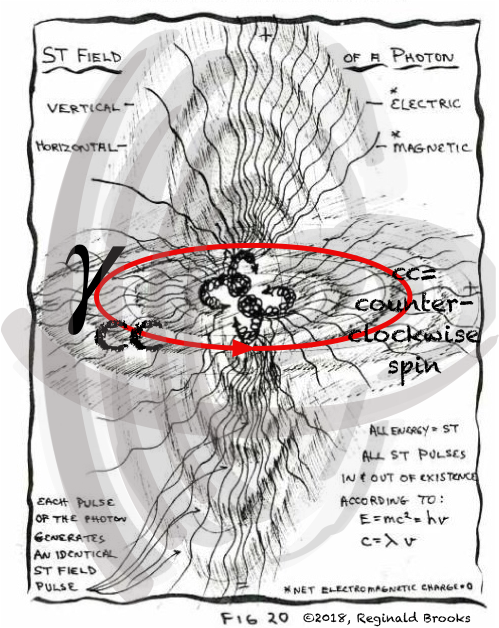 ST FIELD OF A PHOTON
+
VERTICAL - - * ELECTRIC
HORIZONTAL - - * MAGNETIC
γ
cc
cc=
counter-
clockwise
spin
+
ALL ENERGY = ST
ALL ST PULSES
IN & OUT OF EXISTENCE
ACCORDING TO:
E=mc²=hν
c=λν
EACH PULSE
OF THE PHOTON
GENERATES
AN IDENTICAL
ST FIELD
PULSE
* NET ELECTROMAGNETIC CHARGE=0
FIG 20 ©2018, Reginald Brooks